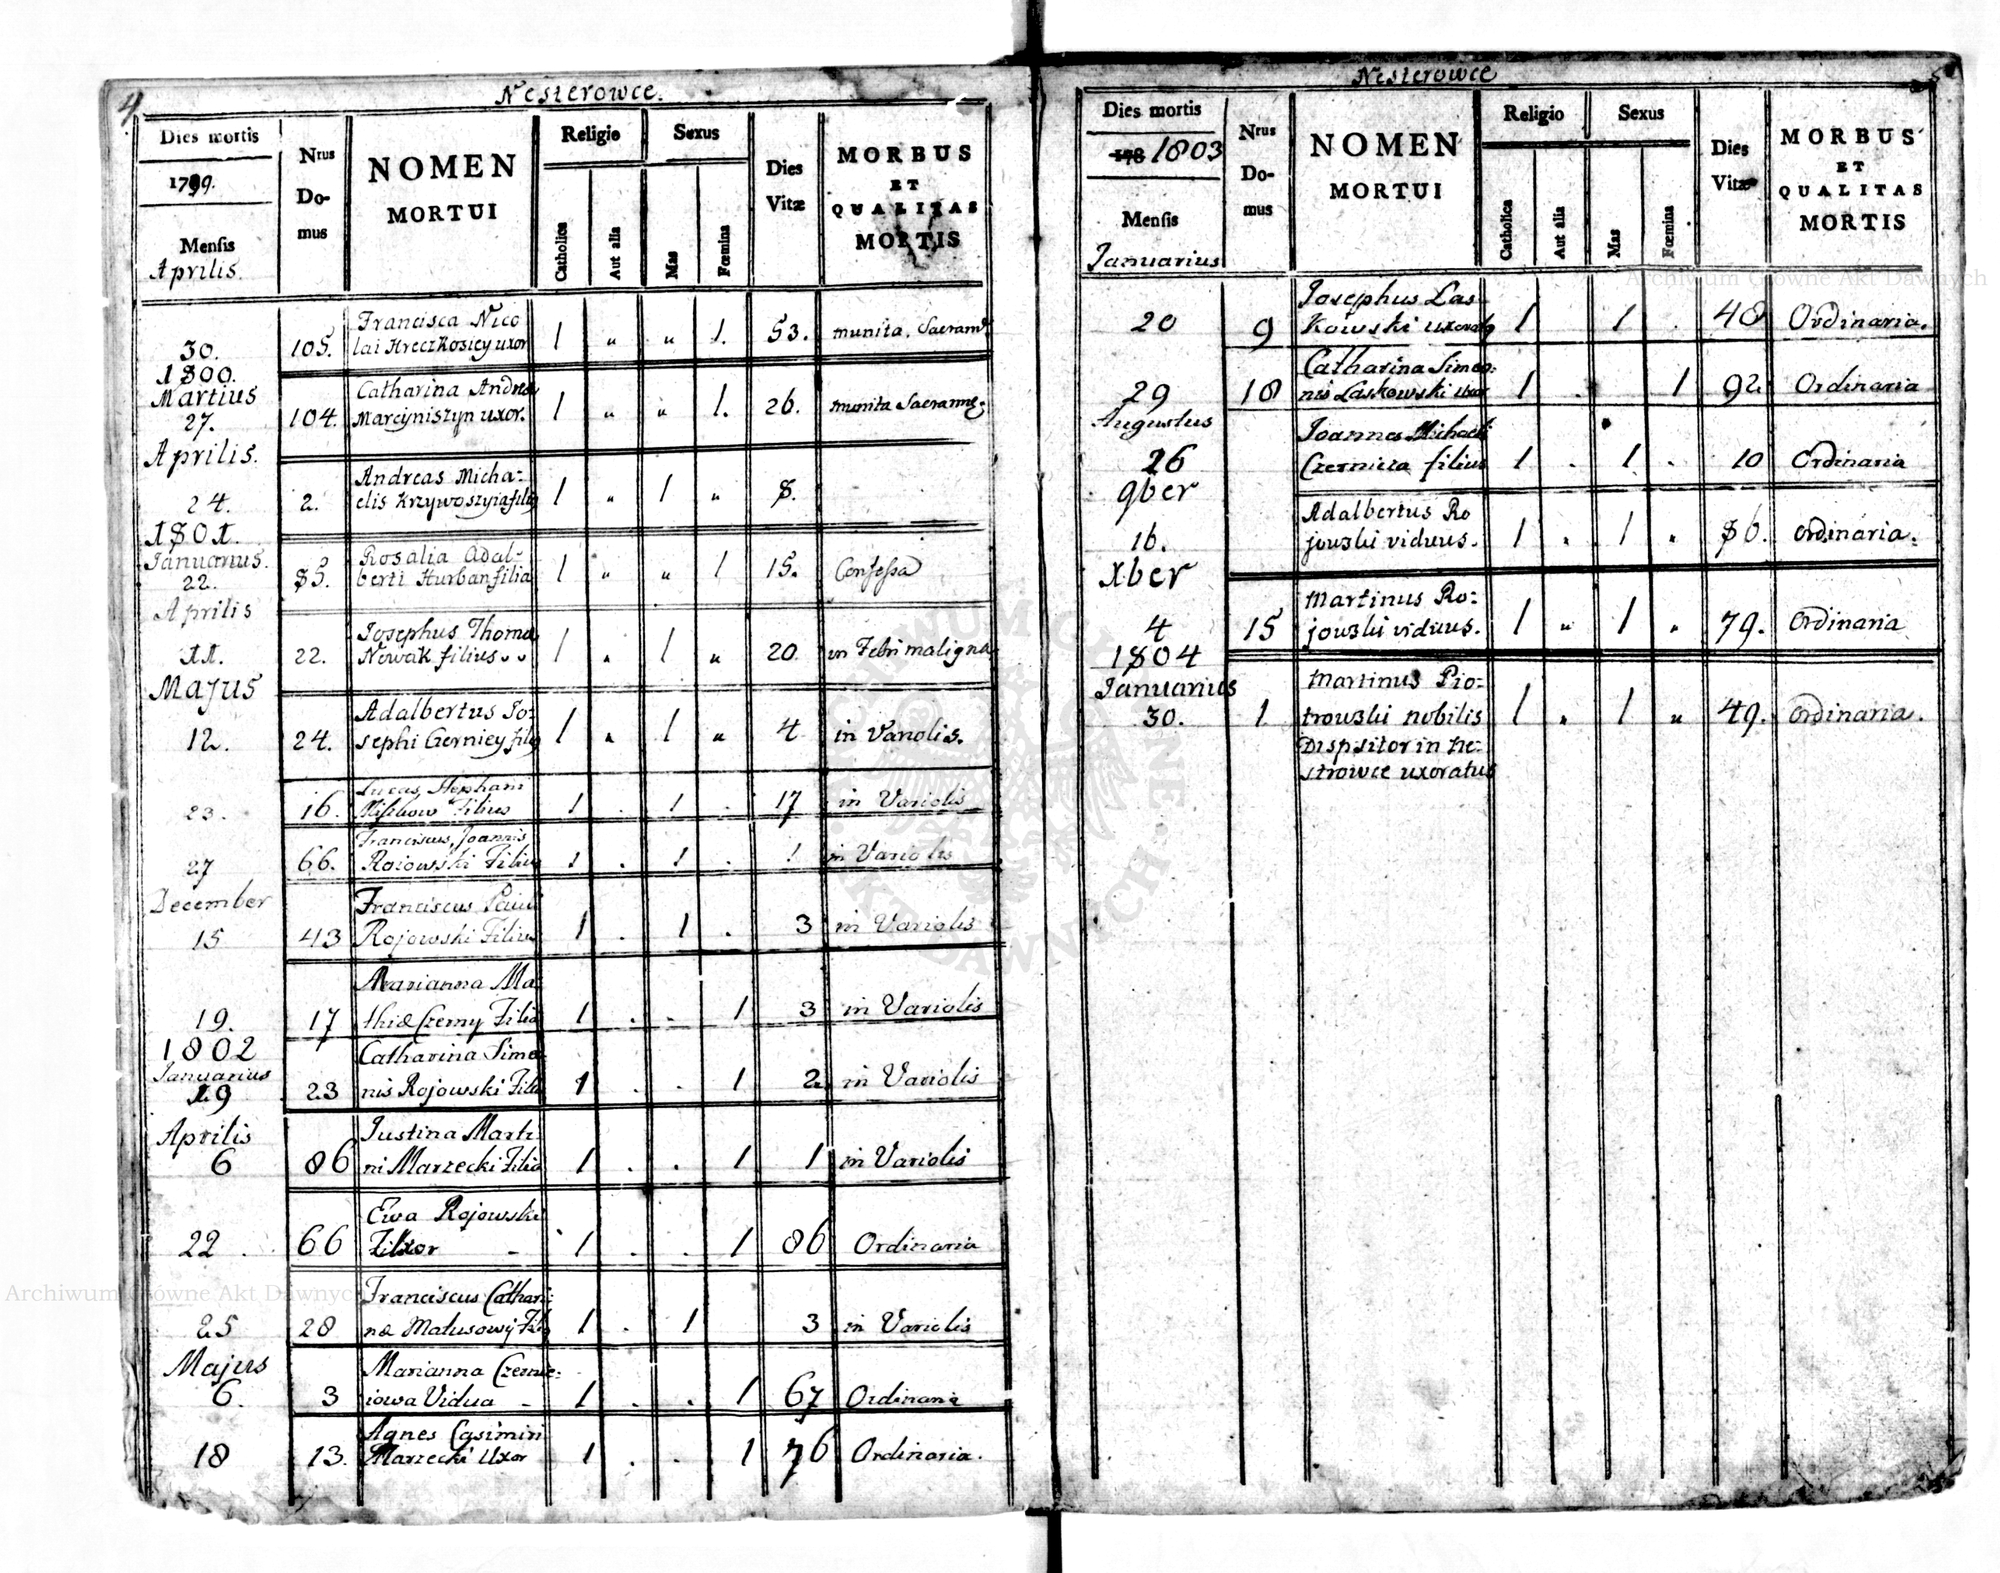 4
Nesterowce.
Dies mortis
1799.
Mensis
Aprilis.
Nrus Do- mus
NOMEN MORTUI
Religio
Catholica
Aut alia
Sexus
Mas
Fœmina
Dies Vitæ
MORBUS ET QUALITAS MORTIS
30. 105. Francisca Nico
lai Hreczkosiey uxor 1 " " 1. 53. munita. Sacram.
1800.
Martius
27. 104. Catharina Andrea
Marcyniszyn uxor. 1 " " 1. 26. munita Sacramne;
Aprilis.
24. 2. Andreas Micha=
elis Krzywoszyia filius 1 " 1 " 8.
1801.
Januarius.
22. 85. Rosalia Adal=
berti Hurban filia 1 " " 1 15. Confessa
Aprilis
11. 22. Josephus Thoma
Nowak filius 1 " 1 " 20. in Febri maligna
Majus
12. 24. Adalbertus Jo=
sephi Gerniey filius 1 " 1 " 4 in Variolis.
23. 16. Lucas, Stephani
Filius 1 . 1 . 17 in Variolis
27 66. Franciscus, Joannis
Roiowski Filius 1 . 1 . 1 in Variolis
December
15 43 Franciscus Pauli
Rojowski Filius 1 . 1 . 3 in Variolis
19. 17 Marianna Ma=
thiæ Czerny Filia 1 . . 1 3 in Variolis
1802
Januarius
19 23 Catharina Simo=
nis Rojowski Filia 1 . . 1 2 in Variolis
Aprilis
6 86 Justina Marti=
ni Marzecki Filia 1 . . 1 1 in Variolis
22 66 Ewa Rojowski
Uxor 1 . . 1 86 Ordinaria
25 28 Franciscus Cathari=
næ Matusowij Filius 1 . 1 3 in Variolis
Majus
6. 3 Marianna Czernie=
iowa Vidua 1 . . 1 67 Ordinaria
18 13. Agnes Casimiri
Marzecki Uxor 1 . . 1 76 Ordinaria.
5
Nesterowce
Dies mortis
178 1803
Mensis
Januarius
Nrus Do- mus
NOMEN MORTUI
Religio
Catholica
Aut alia
Sexus
Mas
Fœmina
Dies Vitæ
MORBUS ET QUALITAS MORTIS
20 9 Josephus Las=
kowski uxoratg 1 1 . 48 Ordinaria.
29 18 Catharina Simeo=
nis Laskowski uxor 1 . 1 92 Ordinaria
Augustus
26 Joannes Michaeli
Czernieia filius 1 . 1 . 10 Ordinaria
9ber
16. Adalbertus Ro
jowski viduus. 1 " 1 " 86. ordinaria.
Xber
4 15 Martinus Ro=
jowski viduus. 1 " 1 " 79. Ordinaria
1804
Januarius
30. 1. Martinus Pio=
trowski nobilis 1 " 1 " 49. Ordinaria.
Dispsitor in Ne=
strowce uxoratus
Archiwum Główne Akt Dawnych
Archiwum Główne Akt Dawnych
ARCHIWUM GŁÓWNE AKT DAWNYCH